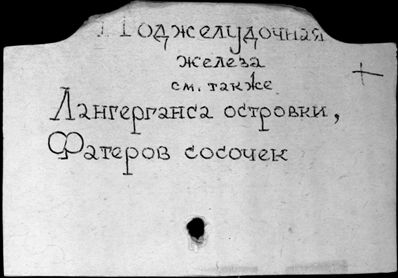 Поджелудочная
железа
см. также
Лангерганса островки,
Фатеров сосочек